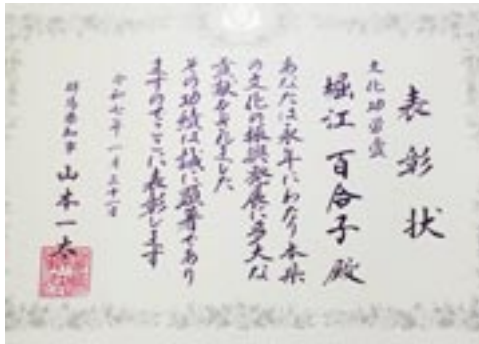 表彰状
文化功労賞
堀江 百合子 殿
あなたは永年にわたり本県
の文化の振興発展に多大な
貢献をされました
その功績は誠に顕著であり
ますのでここに表彰します
令和七年一月三十一日
群馬県知事 山本一太